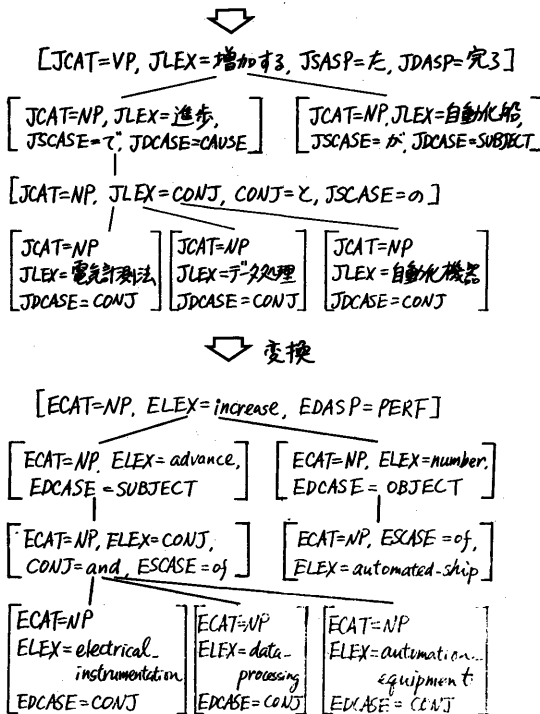 [JCAT=VP, JLEX=増加する, JSASP=た, JDASP=完了]
[JCAT=NP, JLEX=進歩,
JSCASE=で, JDCASE=CAUSE]
[JCAT=NP, JLEX=自動化船,
JSCASE=が, JDCASE=SUBJECT]
[JCAT=NP, JLEX=CONJ, CONJ=と, JSCASE=の]
[JCAT=NP
JLEX=電気計測法
JDCASE=CONJ]
[JCAT=NP
JLEX=データ処理
JDCASE=CONJ]
[JCAT=NP
JLEX=自動化機器
JDCASE=CONJ]
変換
[ECAT=NP, ELEX=increase, EDASP=PERF]
[ECAT=NP, ELEX=advance,
EDCASE=SUBJECT]
[ECAT=NP, ELEX=number,
EDCASE=OBJECT]
[ECAT=NP, ELEX=CONJ,
CONJ=and, ESCASE=of]
[ECAT=NP, ESCASE=of,
ELEX=automated-ship]
[ECAT=NP
ELEX=electrical_
instrumentation
EDCASE=CONJ]
[ECAT=NP
ELEX=data-
processing
EDCASE=CONJ]
[ECAT=NP
ELEX=automation_
equipment
EDCASE=CONJ]